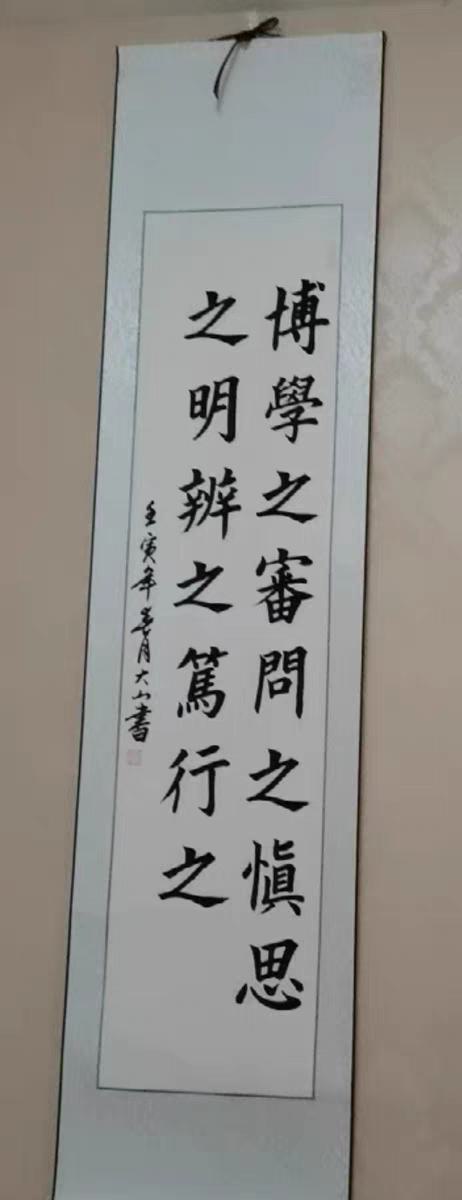 博學之審問之慎思
之明辨之篤行之
壬寅年春月大山書